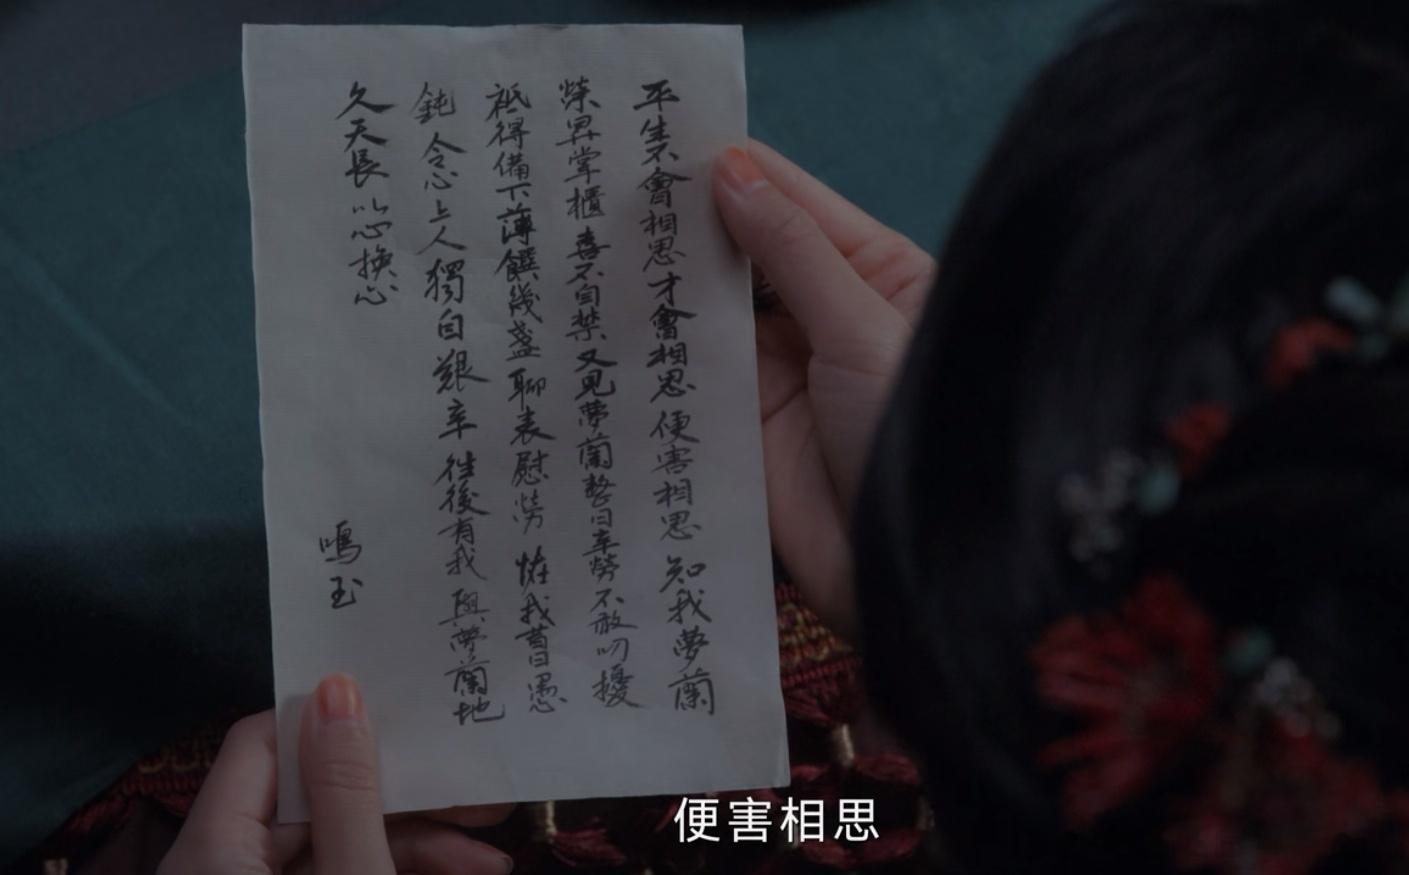 平生不會相思 才會相思 便害相思 知我夢蘭
榮昇掌櫃 喜不自禁 又見夢蘭整日辛勞 不敢叨擾
祗得備下薄饌幾盞 聊表慰勞 怪我昔日愚
鈍 令心上人獨自艱辛 往後有我 與夢蘭地
久天長 以心換心
鳴玉
便害相思